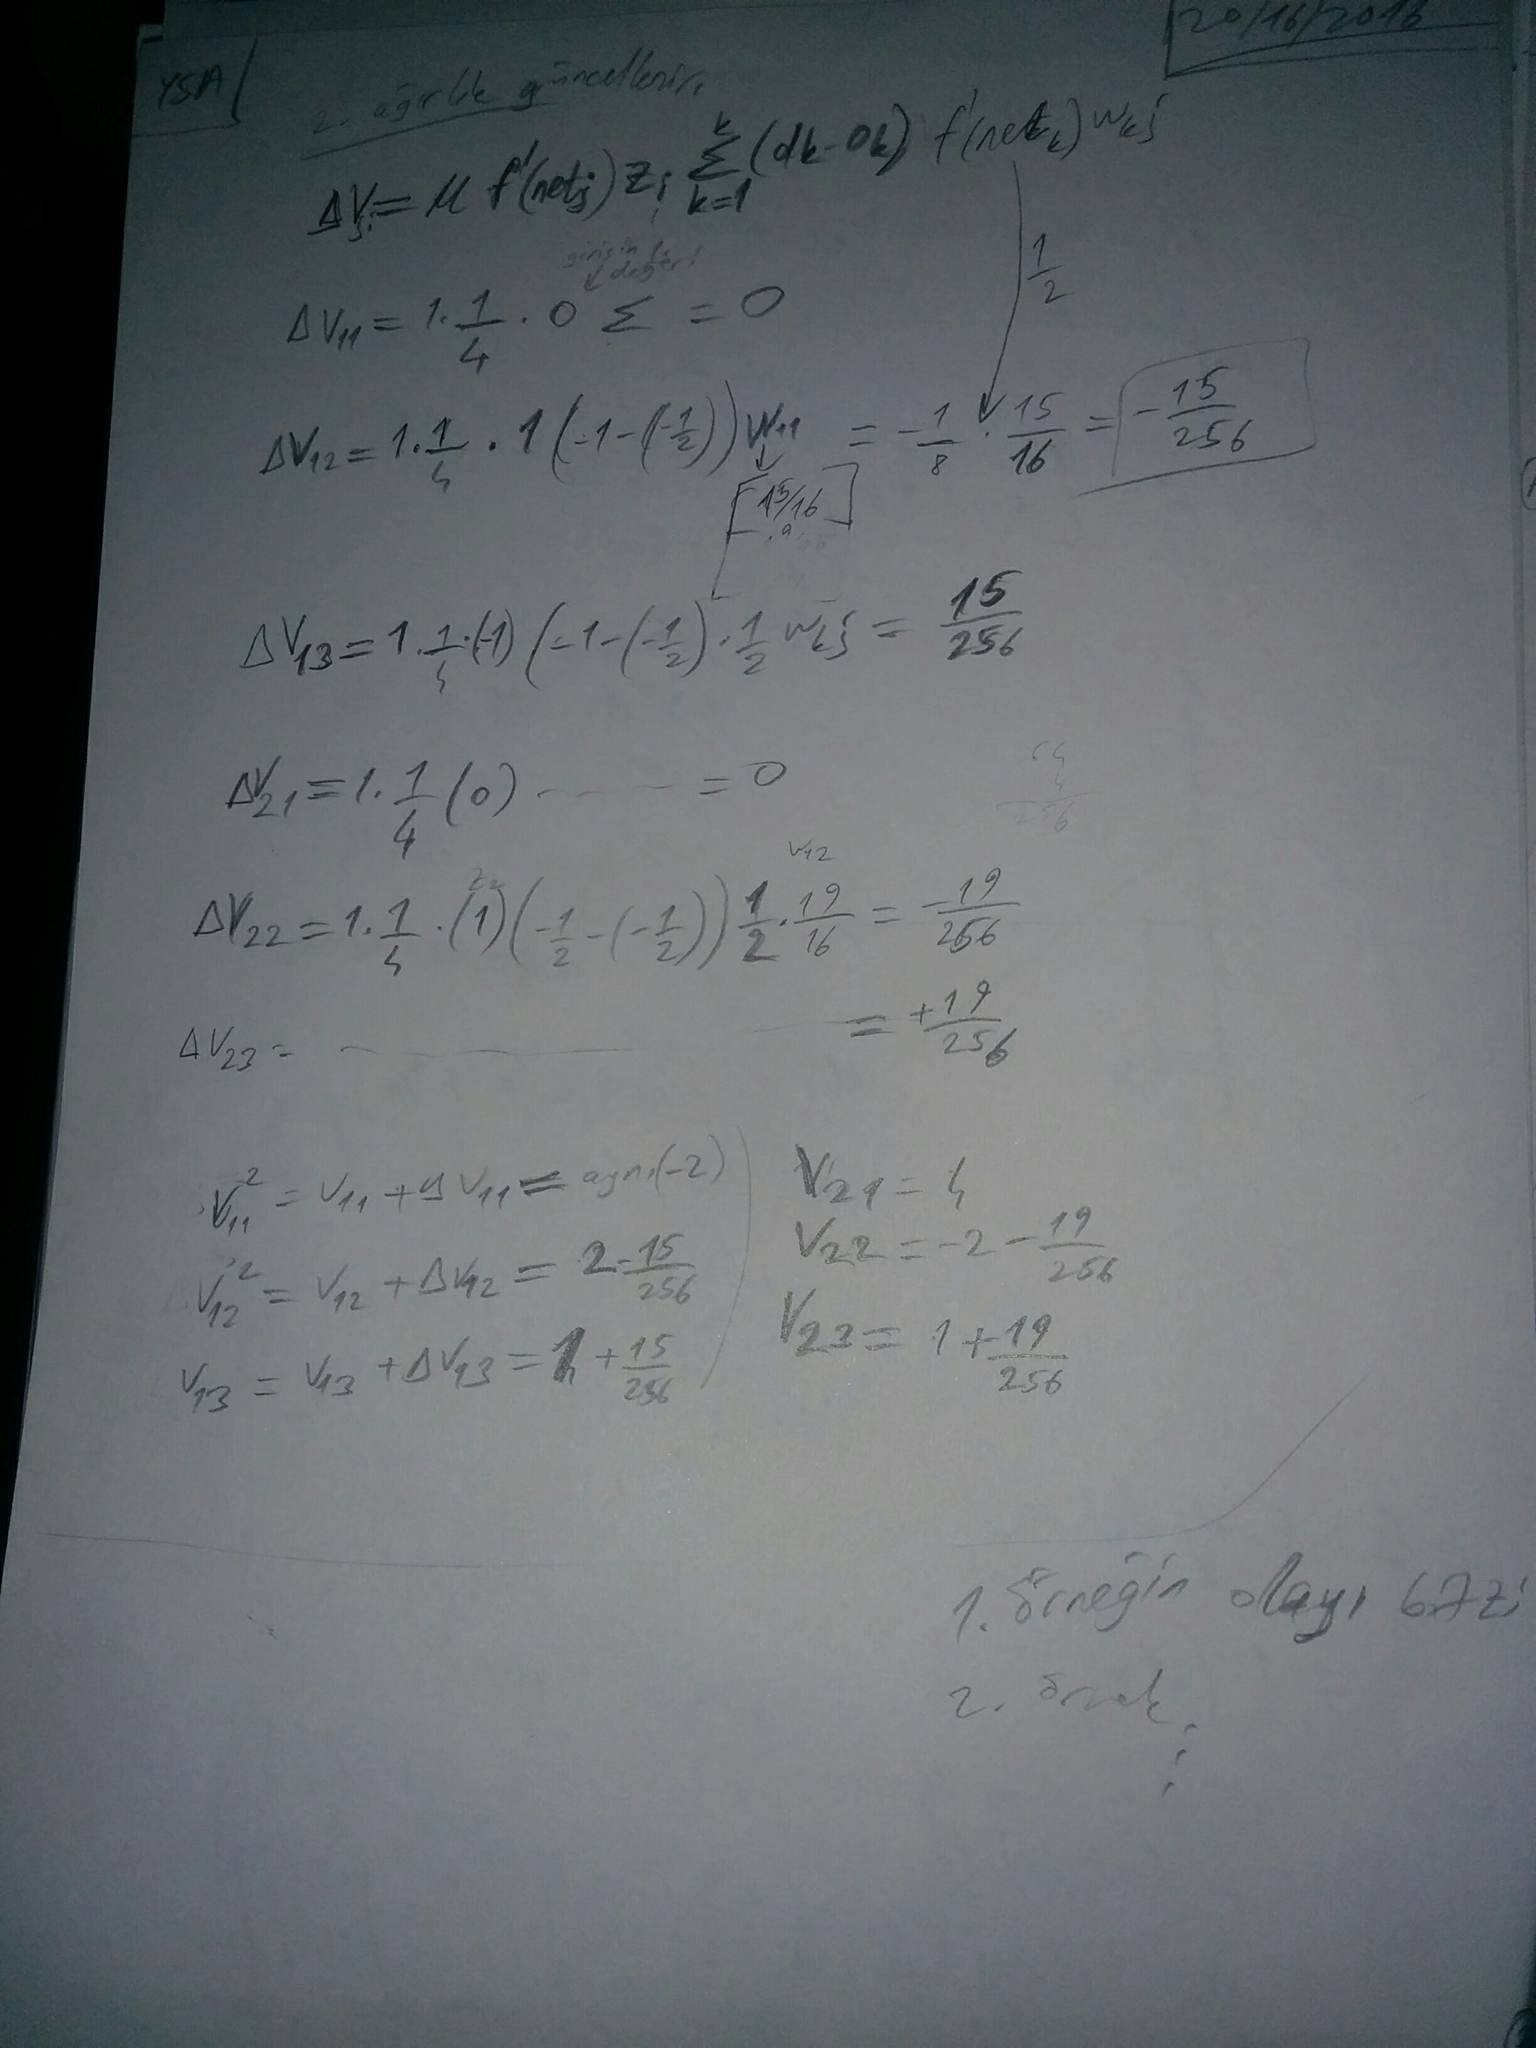 YSA
20/16/2016
2. ağırlık güncellenir.
ΔVji = μ f'(netj) zi Σ k=1 k (dk-Ok) f'(netk) wkj
girişin 1. değeri
1/2
ΔV11 = 1. 1/4 . 0 Σ = 0
ΔV12 = 1. 1/4 . 1 (-1-(-1/2)) W11 = -1/8 . 15/16 = -15/256
[15/16]
ΔV13 = 1. 1/4 . (-1) (-1-(-1/2) . 1/2 wkj = 15/256
ΔV21 = 1. 1/4 (0) ---- = 0
64
4
256
w12
z2
ΔV22 = 1. 1/4 . (1) (-1/2 -(-1/2)) 1/2 . 19/16 = -19/256
ΔV23 = = +19/256
V11² = V11 + ΔV11 = aynı (-2)
V21 = 4
V12² = V12 + ΔV12 = 2 - 15/256
V22 = -2 - 19/256
V13 = V13 + ΔV13 = 1 + 15/256
V23 = 1 + 19/256
1. örneğin olayı
2. örnek